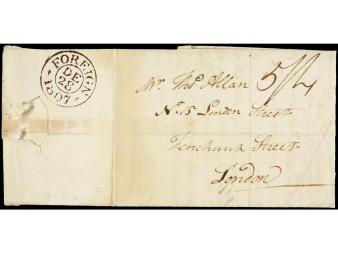 FOREIGN
DE
28
1807
Mr. Thos. Allan 5/4
No. 15 London Street
Fenchurch Street
London